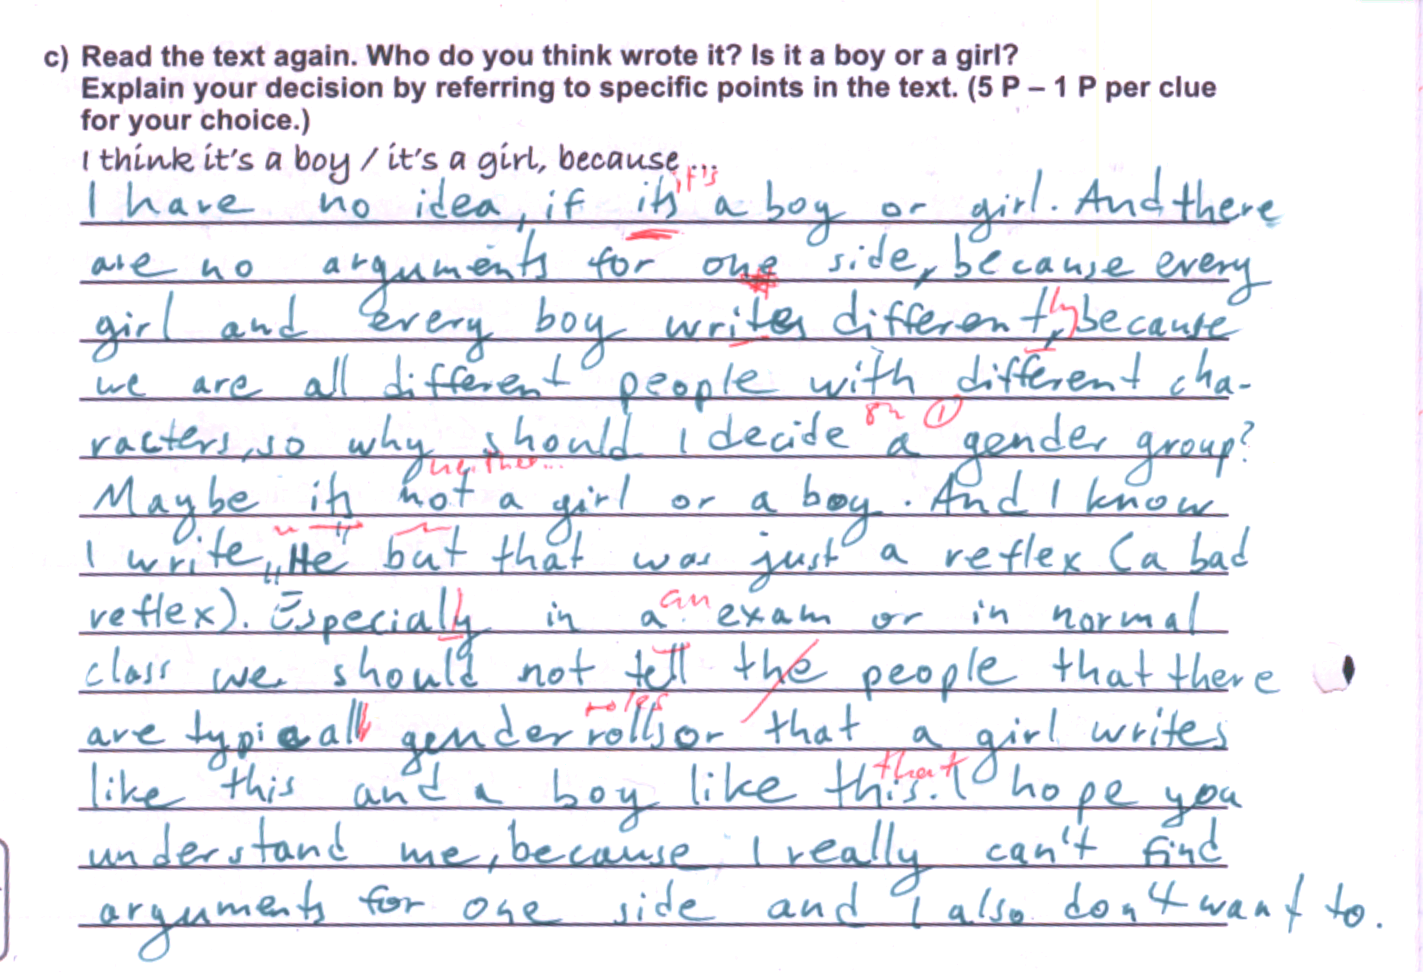 c) Read the text again. Who do you think wrote it? Is it a boy or a girl?
Explain your decision by referring to specific points in the text. (5 P – 1 P per clue
for your choice.)
I think it's a boy / it's a girl, because ...
it's
I have no idea, if its a boy or girl. And there
are no arguments for one side, because every
girl and every boy writes different, because
ly
we are all different people with different cha-
on 1
racters, so why should I decide a gender group?
neither...
Maybe its not a girl or a boy. And I know
I write „He" but that was just a reflex (a bad
an
reflex). Especially in a exam or in normal
class we should not tell the people that there
roles
are typicall gender rolls or that a girl writes
that
like this and a boy like this. I hope you
understand me, because I really can't find
arguments for one side and I also don't want to.